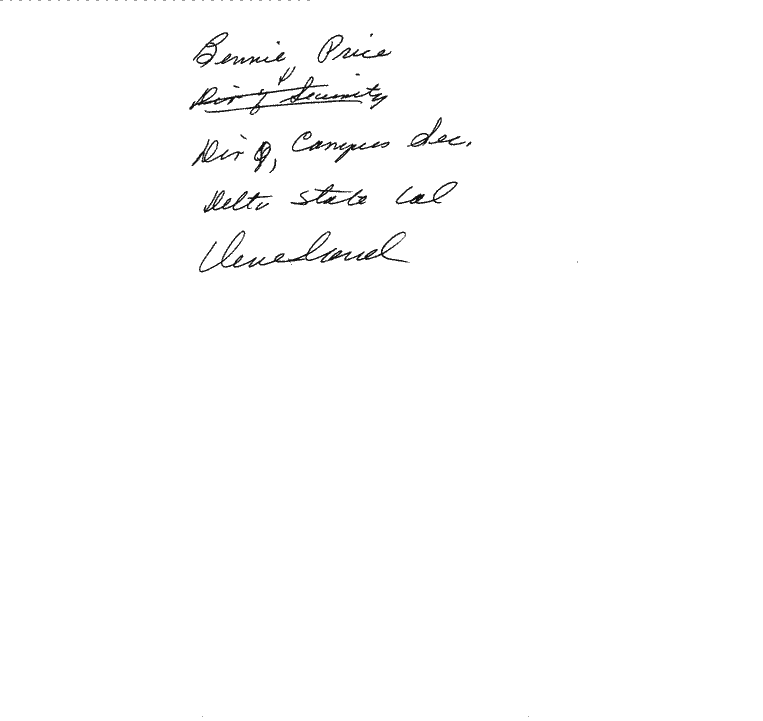 Bennie Price
Dir of Security
Dir of, Campus Sec.
Delta State Col
Cleveland